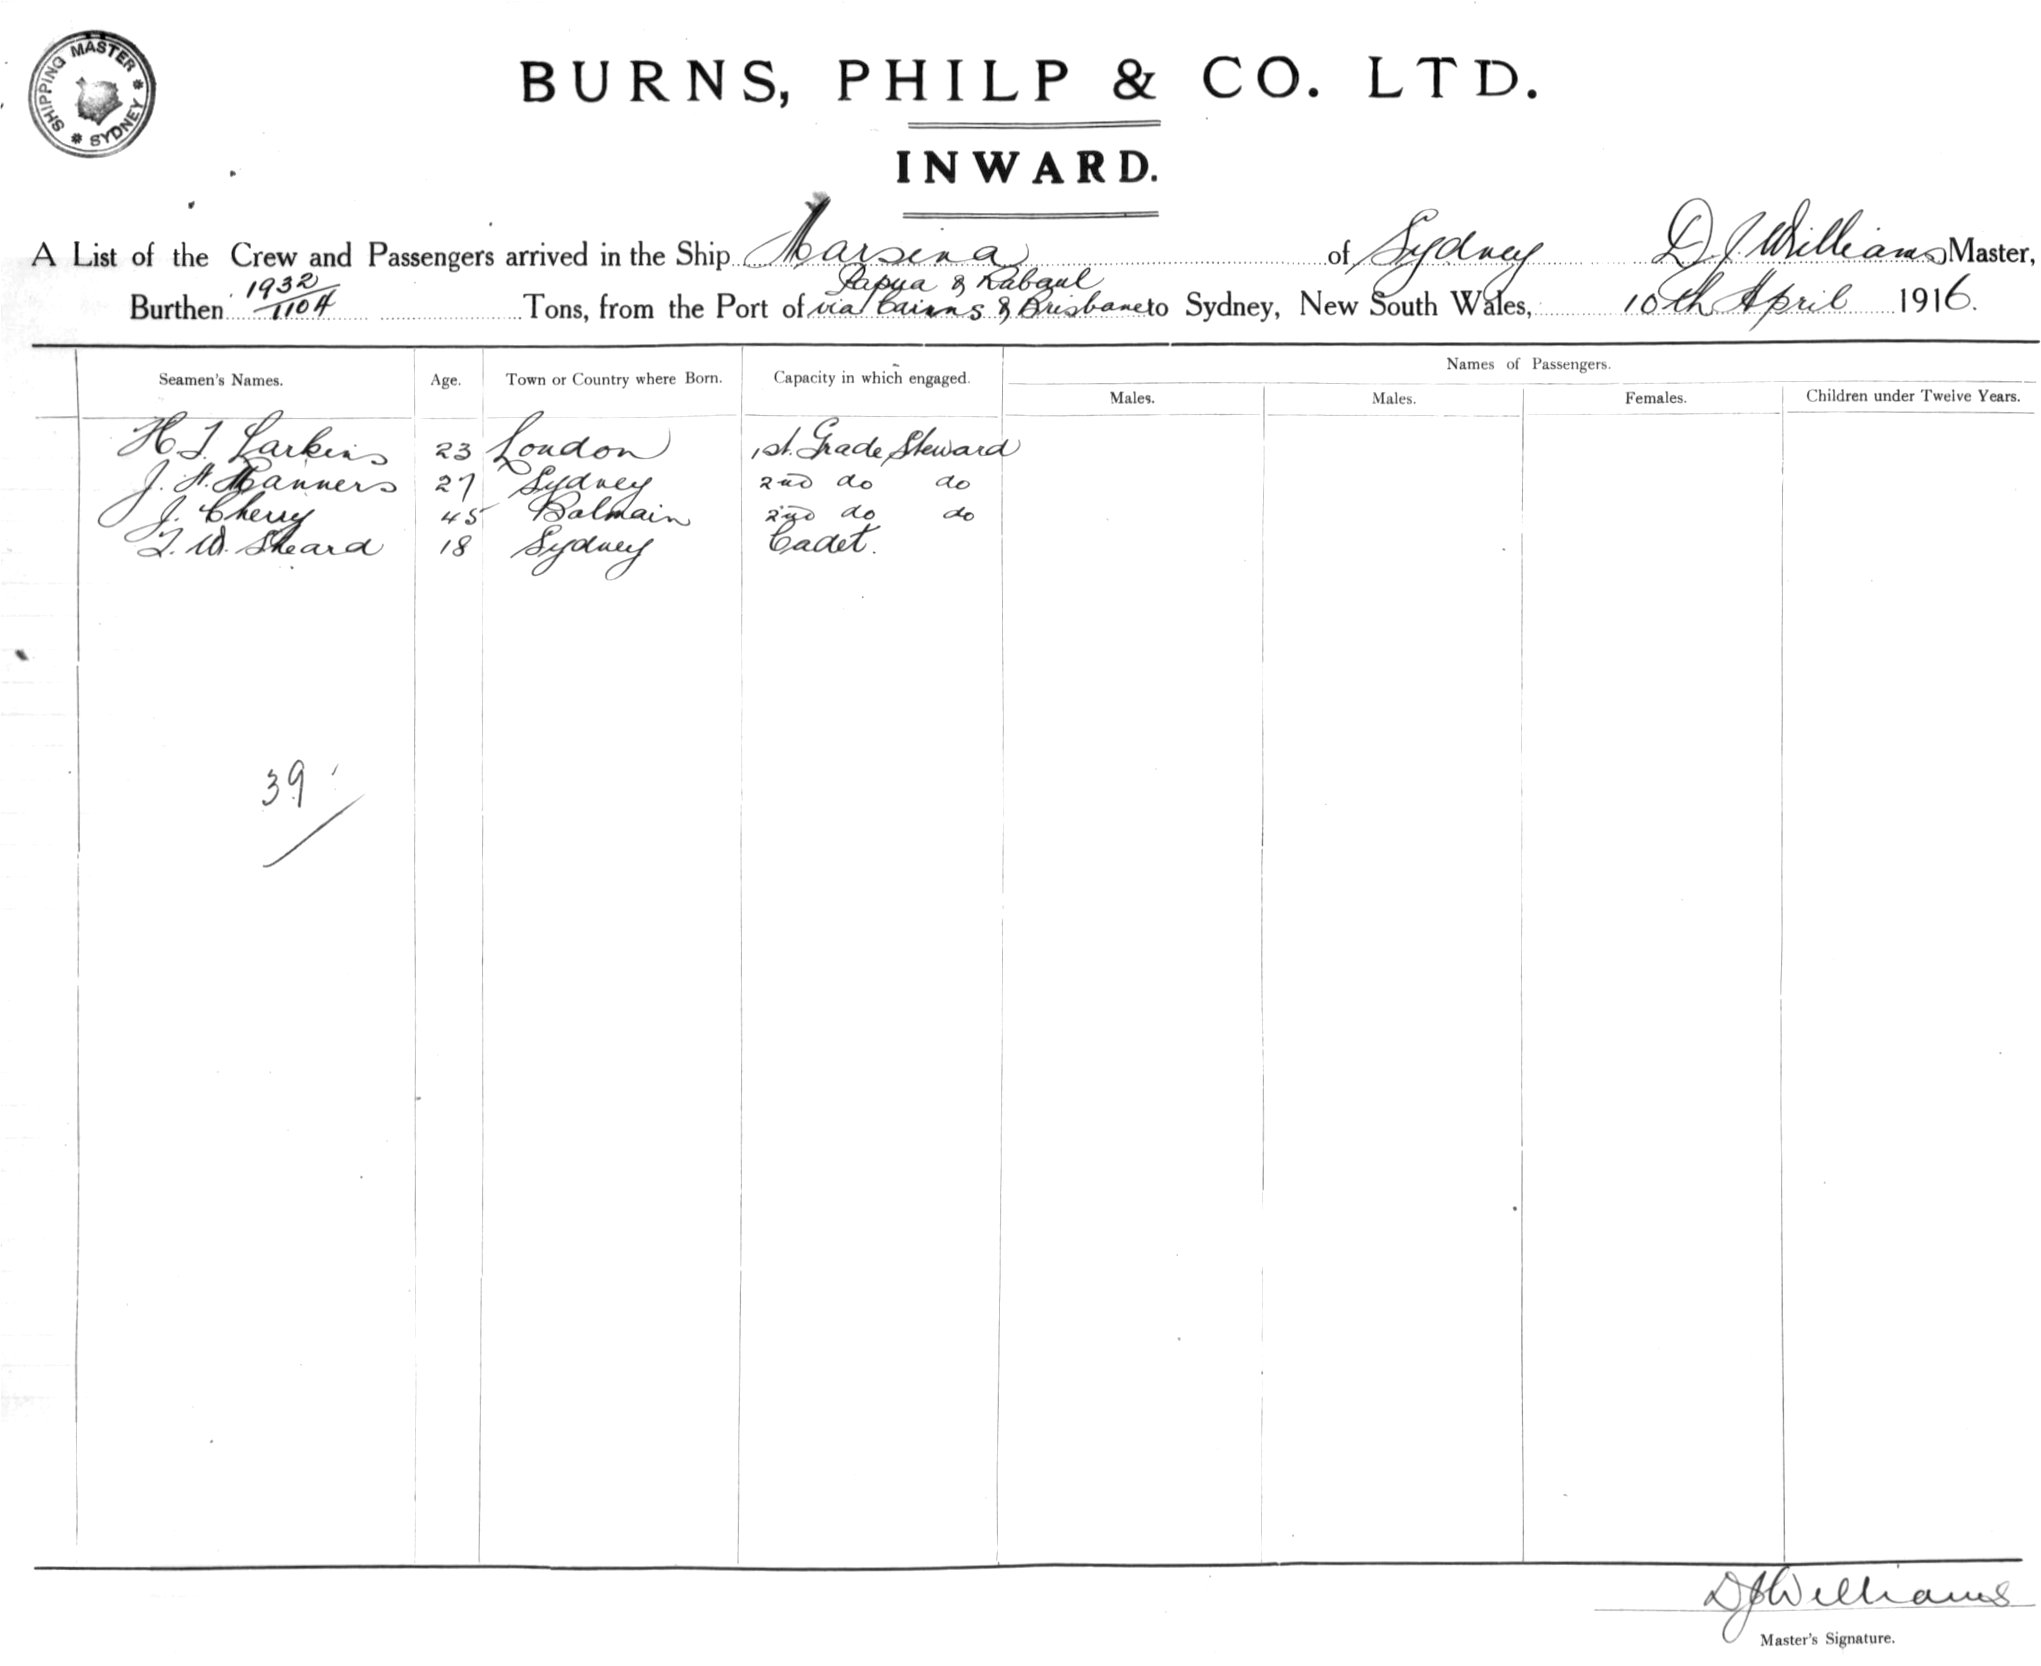 SHIPPING MASTER * SYDNEY *
BURNS, PHILP & CO. LTD.
INWARD.
A List of the Crew and Passengers arrived in the Ship Marsina of Sydney D. J. Williams Master,
Papua & Rabaul
Burthen 1932/1104 Tons, from the Port of via Cairns & Brisbane to Sydney, New South Wales, 10th April 1916.
Names of Passengers.
Seamen's Names. Age. Town or Country where Born. Capacity in which engaged. Males. Males. Females. Children under Twelve Years.
H. J. Larkins 23 London 1st. Grade Steward
J. A. Manners 27 Sydney 2nd do do
J. Cherry 45 Balmain 2nd do do
T. W. Sheard 18 Sydney Cadet.
39
D J Williams
Master's Signature.